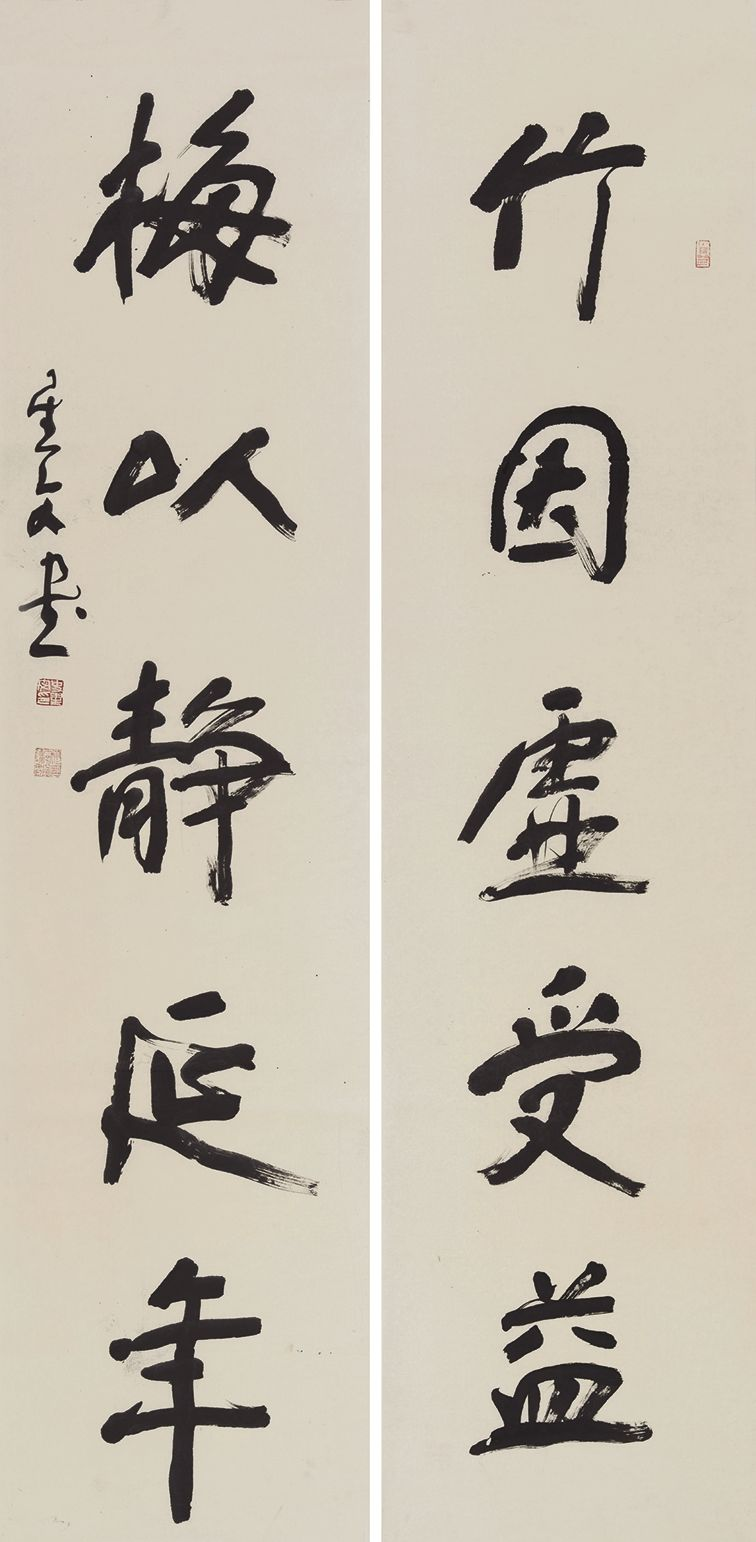 竹因虚受益
梅以静延年